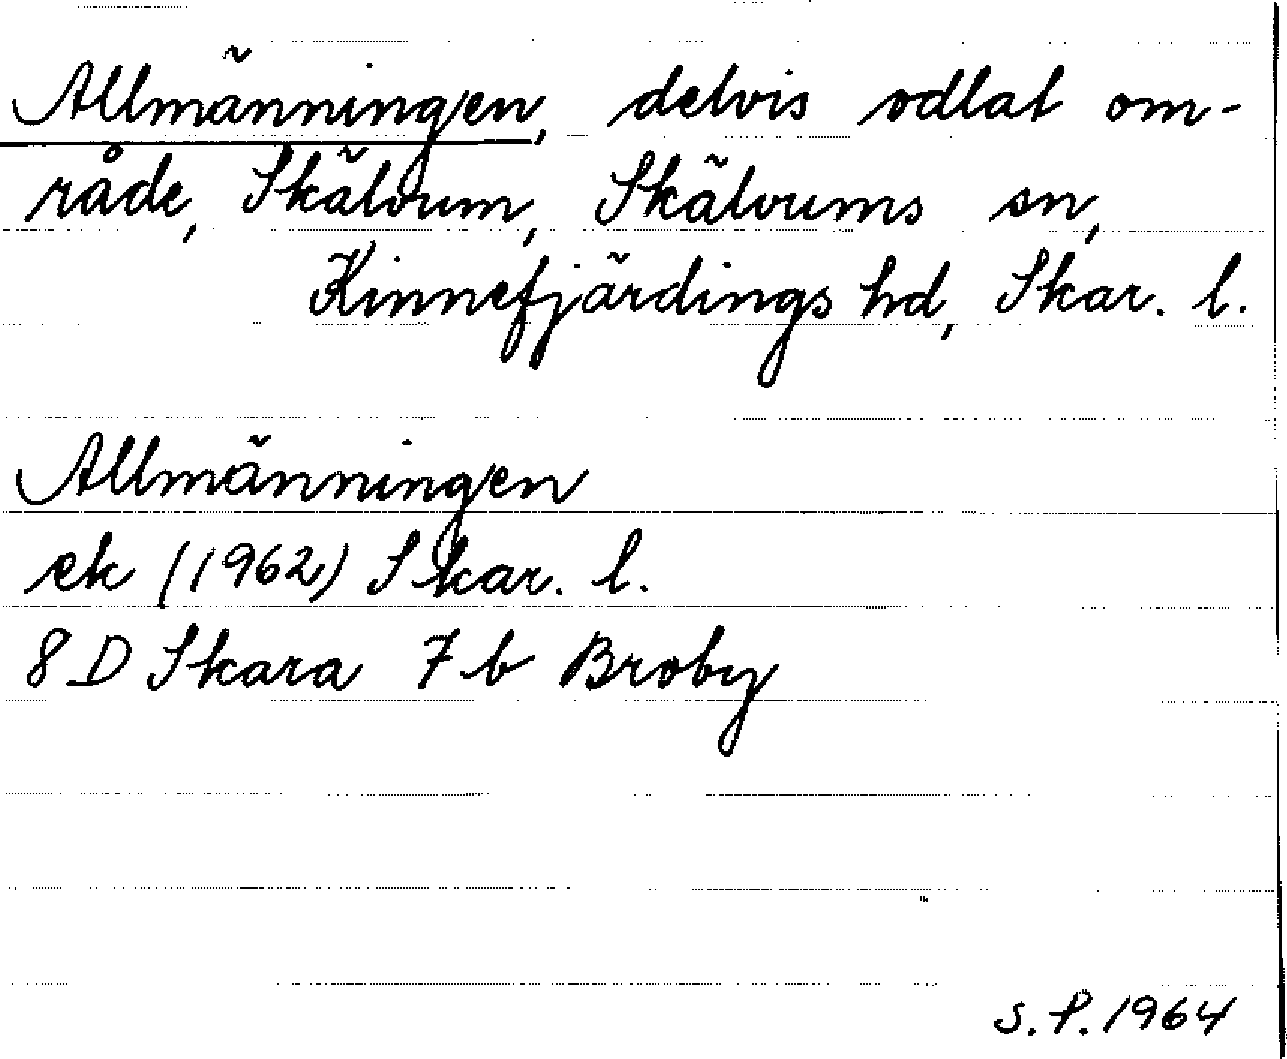 Allmänningen, delvis odlat om-
råde, Skälvum, Skälvums sn,
Kinnefjärdings hd, Skar. l.
Allmänningen
ek (1962) Skar. l.
8 D Skara 7 b Broby
S. P. 1964